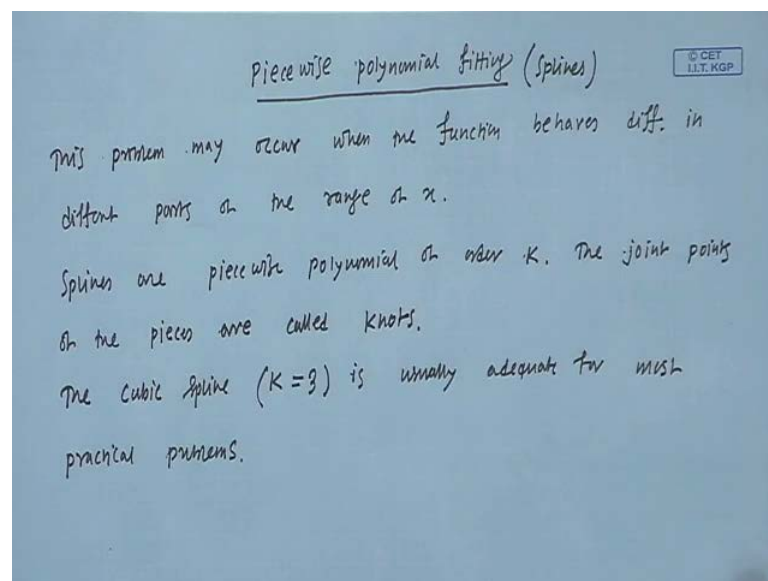 Piecewise polynomial fitting (Splines)
© CET
I.I.T. KGP
This problem may occur when the function behaves diff. in
different parts of the range of x.
Splines are piecewise polynomial of order K. The joint points
of the pieces are called Knots.
The Cubic Spline (K = 3) is usually adequate for most
practical problems.